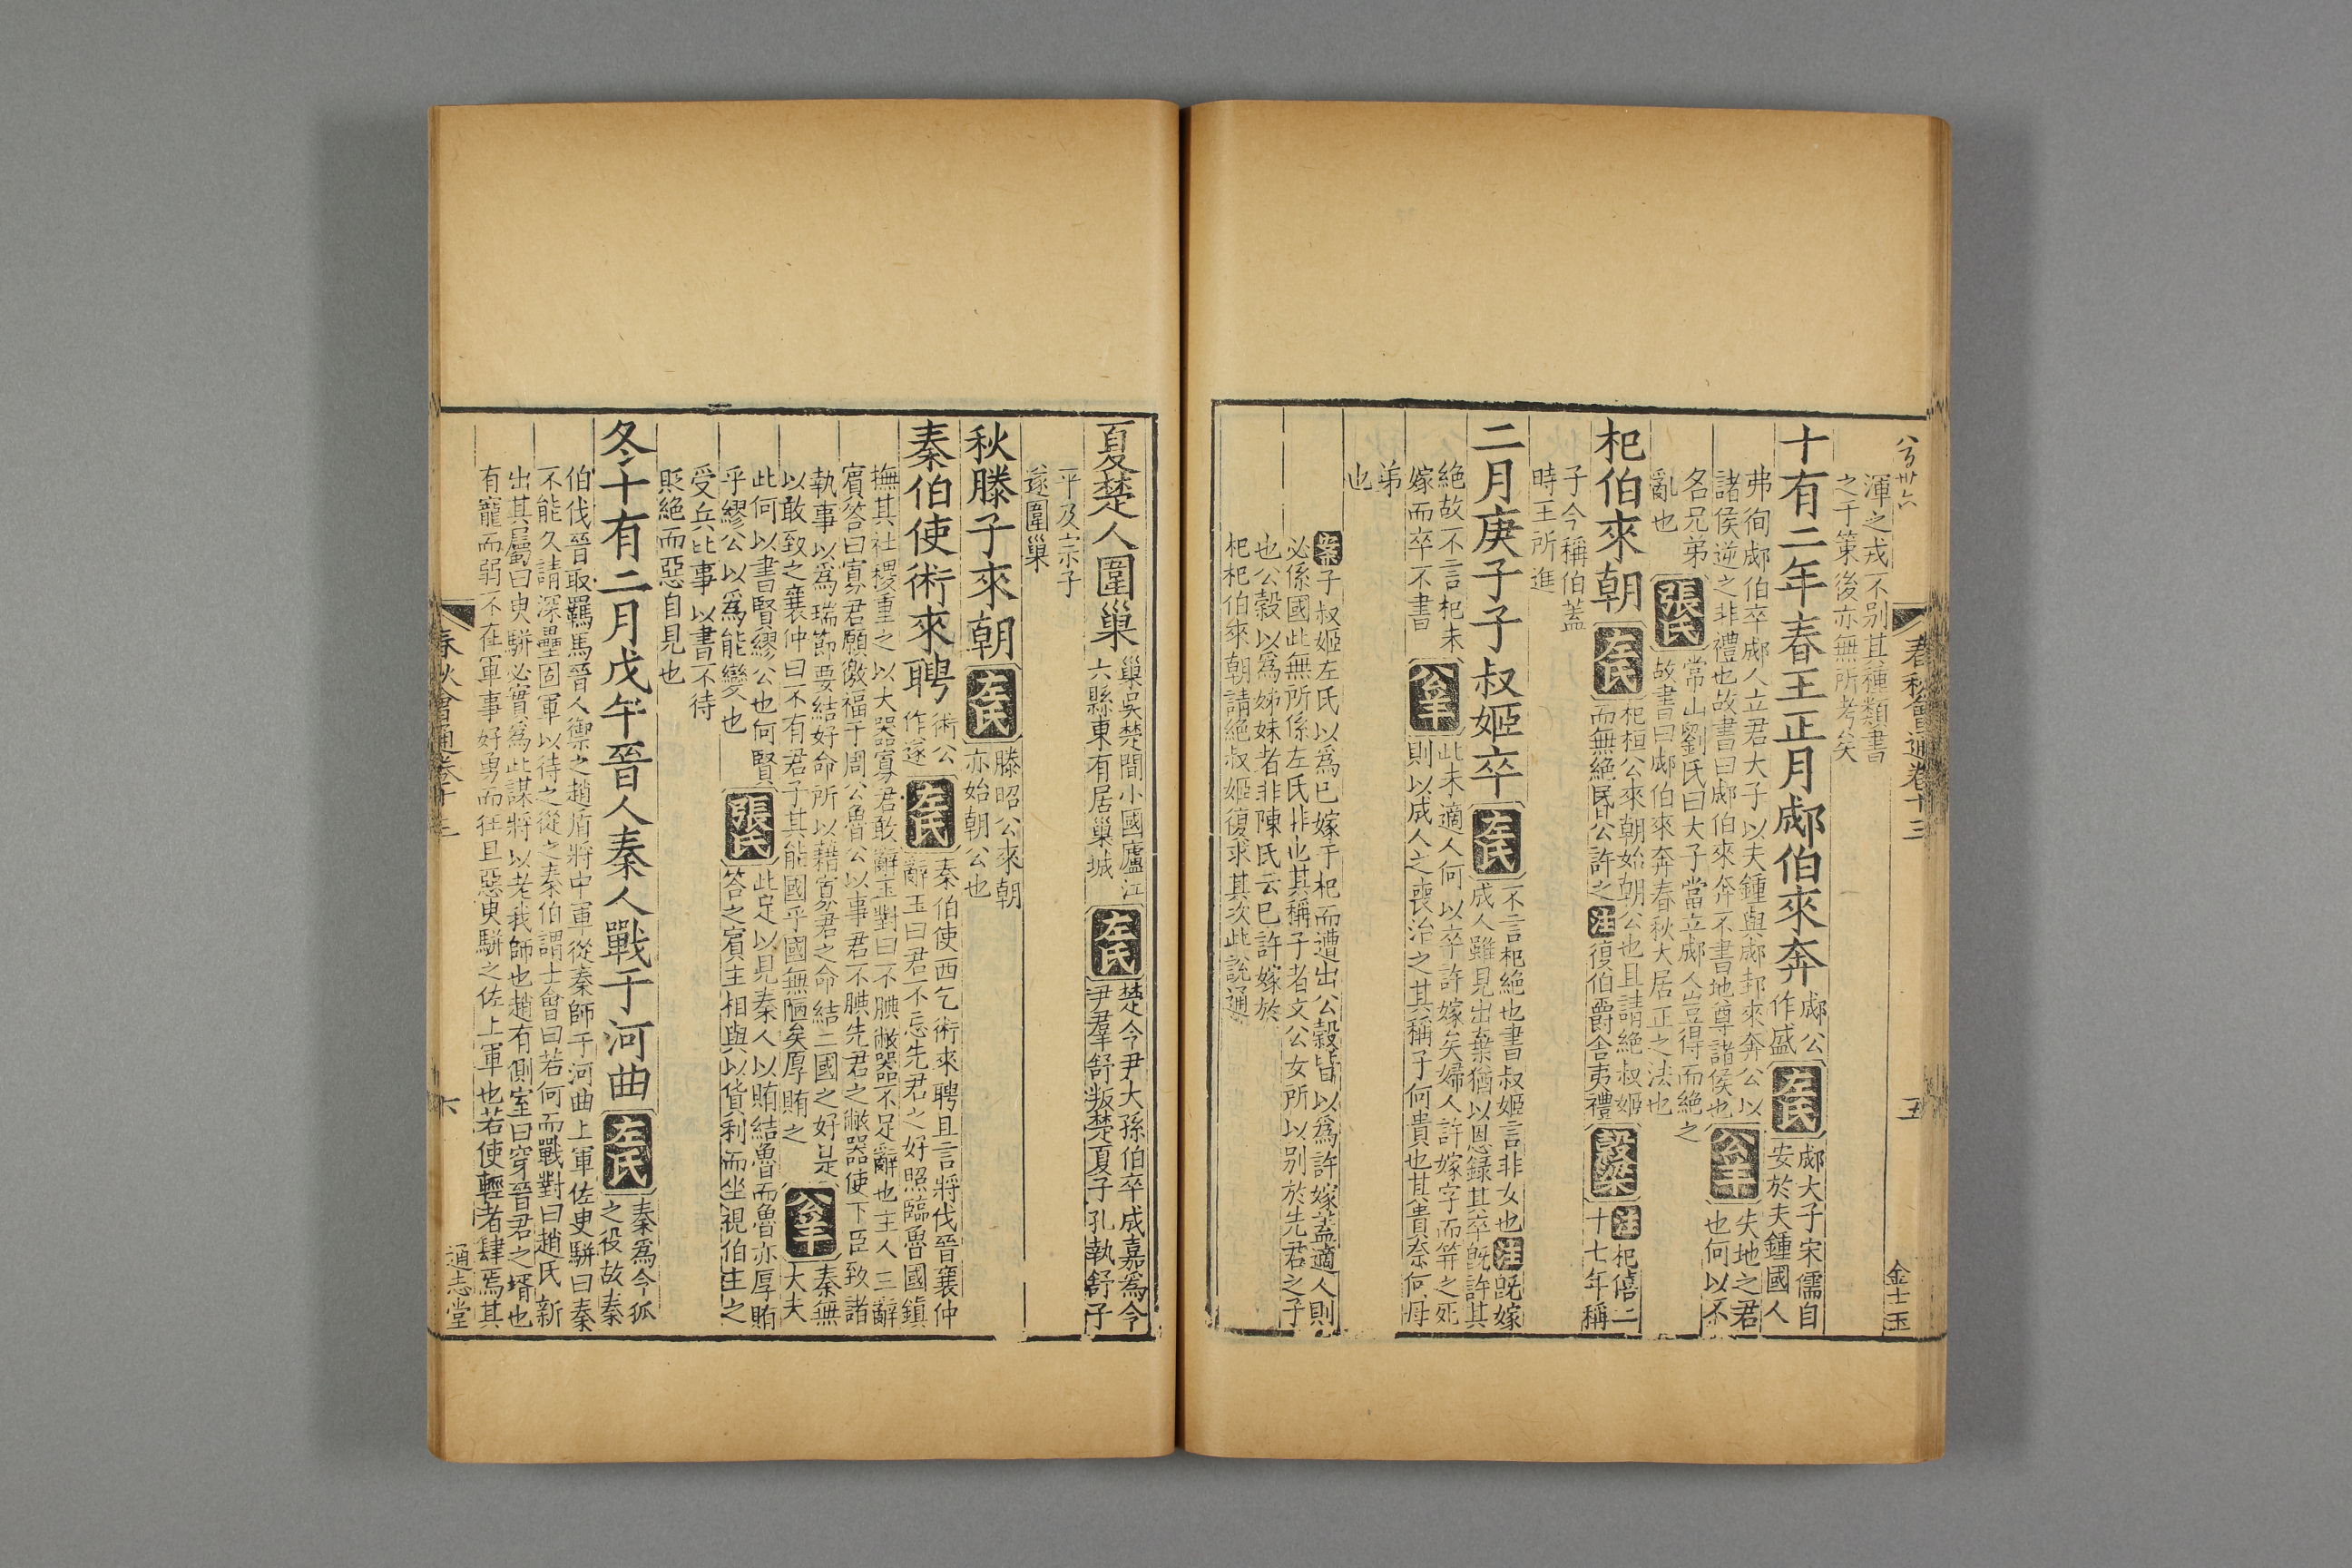 八百卅六
春秋會通卷十三
五
金士玉
渾之戎不别其種類書
之于策後亦無所考矣
十有二年春王正月郕伯來奔
郕公
作盛
左氏
郕大子宋儒自
安於夫鍾國人
弗徇郕伯卒郕人立君大子以夫鍾與郕邽來奔公以
諸侯逆之非禮也故書曰郕伯來奔不書地尊諸侯也
公羊
失地之君
也何以不
名兄弟
亂也
張氏
常山劉氏曰大子當立郕人豈得而絶之
故書曰郕伯來奔春秋大居正之法也
杞伯來朝
左氏
杞桓公來朝始朝公也且請絶叔姬
而無絶昏公許之注復伯爵舍夷禮
穀梁
注杞僖二
十七年稱
子今稱伯蓋
時王所進
二月庚子子叔姬卒
左氏
不言杞絶也書叔姬言非女也注既嫁
成人雖見出棄猶以恩録其卒既許其
絶故不言杞未
嫁而卒不書
公羊
此未適人何以卒許嫁矣婦人許嫁字而笄之死
則以成人之喪治之其稱子何貴也其貴奈何母
弟
也
案子叔姬左氏以爲已嫁于杞而遭出公穀皆以爲許嫁蓋適人則
必係國此無所係左氏非也其稱子者文公女所以别於先君之子
也公穀以爲姊妹者非陳氏云已許嫁於
杞杞伯來朝請絶叔姬復求其次此説通
夏楚人圍巢
巢吳楚間小國廬江
六縣東有居巢城
左氏
楚令尹大孫伯卒成嘉爲令
尹羣舒叛楚夏子孔執舒子
平及宗子
遂圍巢
秋滕子來朝
左氏
滕昭公來朝
亦始朝公也
秦伯使術來聘
術公
作遂
左氏
秦伯使西乞術來聘且言將伐晉襄仲
辭玉曰君不忘先君之好照臨魯國鎮
撫其社稷重之以大器寡君敢辭玉對曰不腆敝器不足辭也主人三辭
賓答曰寡君願徼福于周公魯公以事君不腆先君之敝器使下臣致諸
執事以爲瑞節要結好命所以藉寡君之命結二國之好是
以敢致之襄仲曰不有君子其能國乎國無陋矣厚賄之
公羊
秦無
大夫
此何以書賢繆公也何賢
乎繆公以爲能變也
張氏
此足以見秦人以賄結魯而魯亦厚賄
答之賓主相與以貨利而坐視伯主之
受兵此事以書不待
貶絶而惡自見也
冬十有二月戊午晉人秦人戰于河曲
左氏
秦爲令狐
之役故秦
伯伐晉取羈馬晉人禦之趙盾將中軍從秦師于河曲上軍佐臾駢曰秦
不能久請深壘固軍以待之從之秦伯謂士會曰若何而戰對曰趙氏新
出其屬曰臾駢必實爲此謀將以老我師也趙有側室曰穿晉君之壻也
有寵而弱不在軍事好勇而狂且惡臾駢之佐上軍也若使輕者肆焉其
春秋會通卷十三
六
通志堂